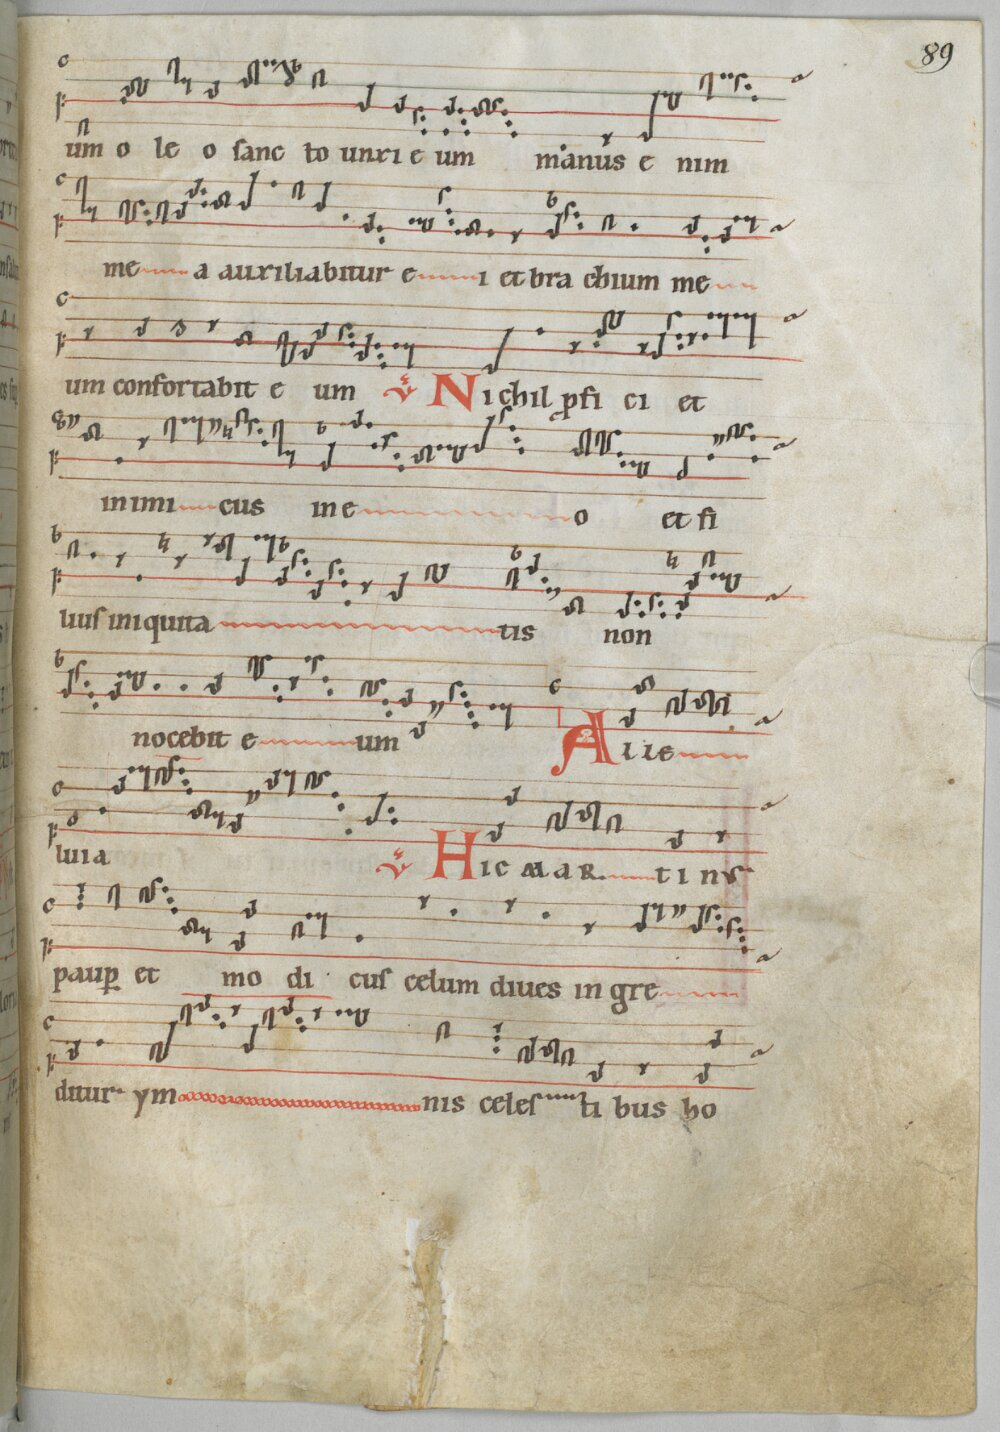 89
um o le o sanc to unxi e um manus e nim
me a auxiliabitur e i et bra chium me
um confortabit e um ℣ Nichil ꝓfi ci et
inimi cus in e o et fi
lius iniquita tis non
nocebit e um Alle
luia ℣ Hic mar tinus
pauꝑ et mo di cus celum diues in gre
ditur ym nis celes ti bus ho